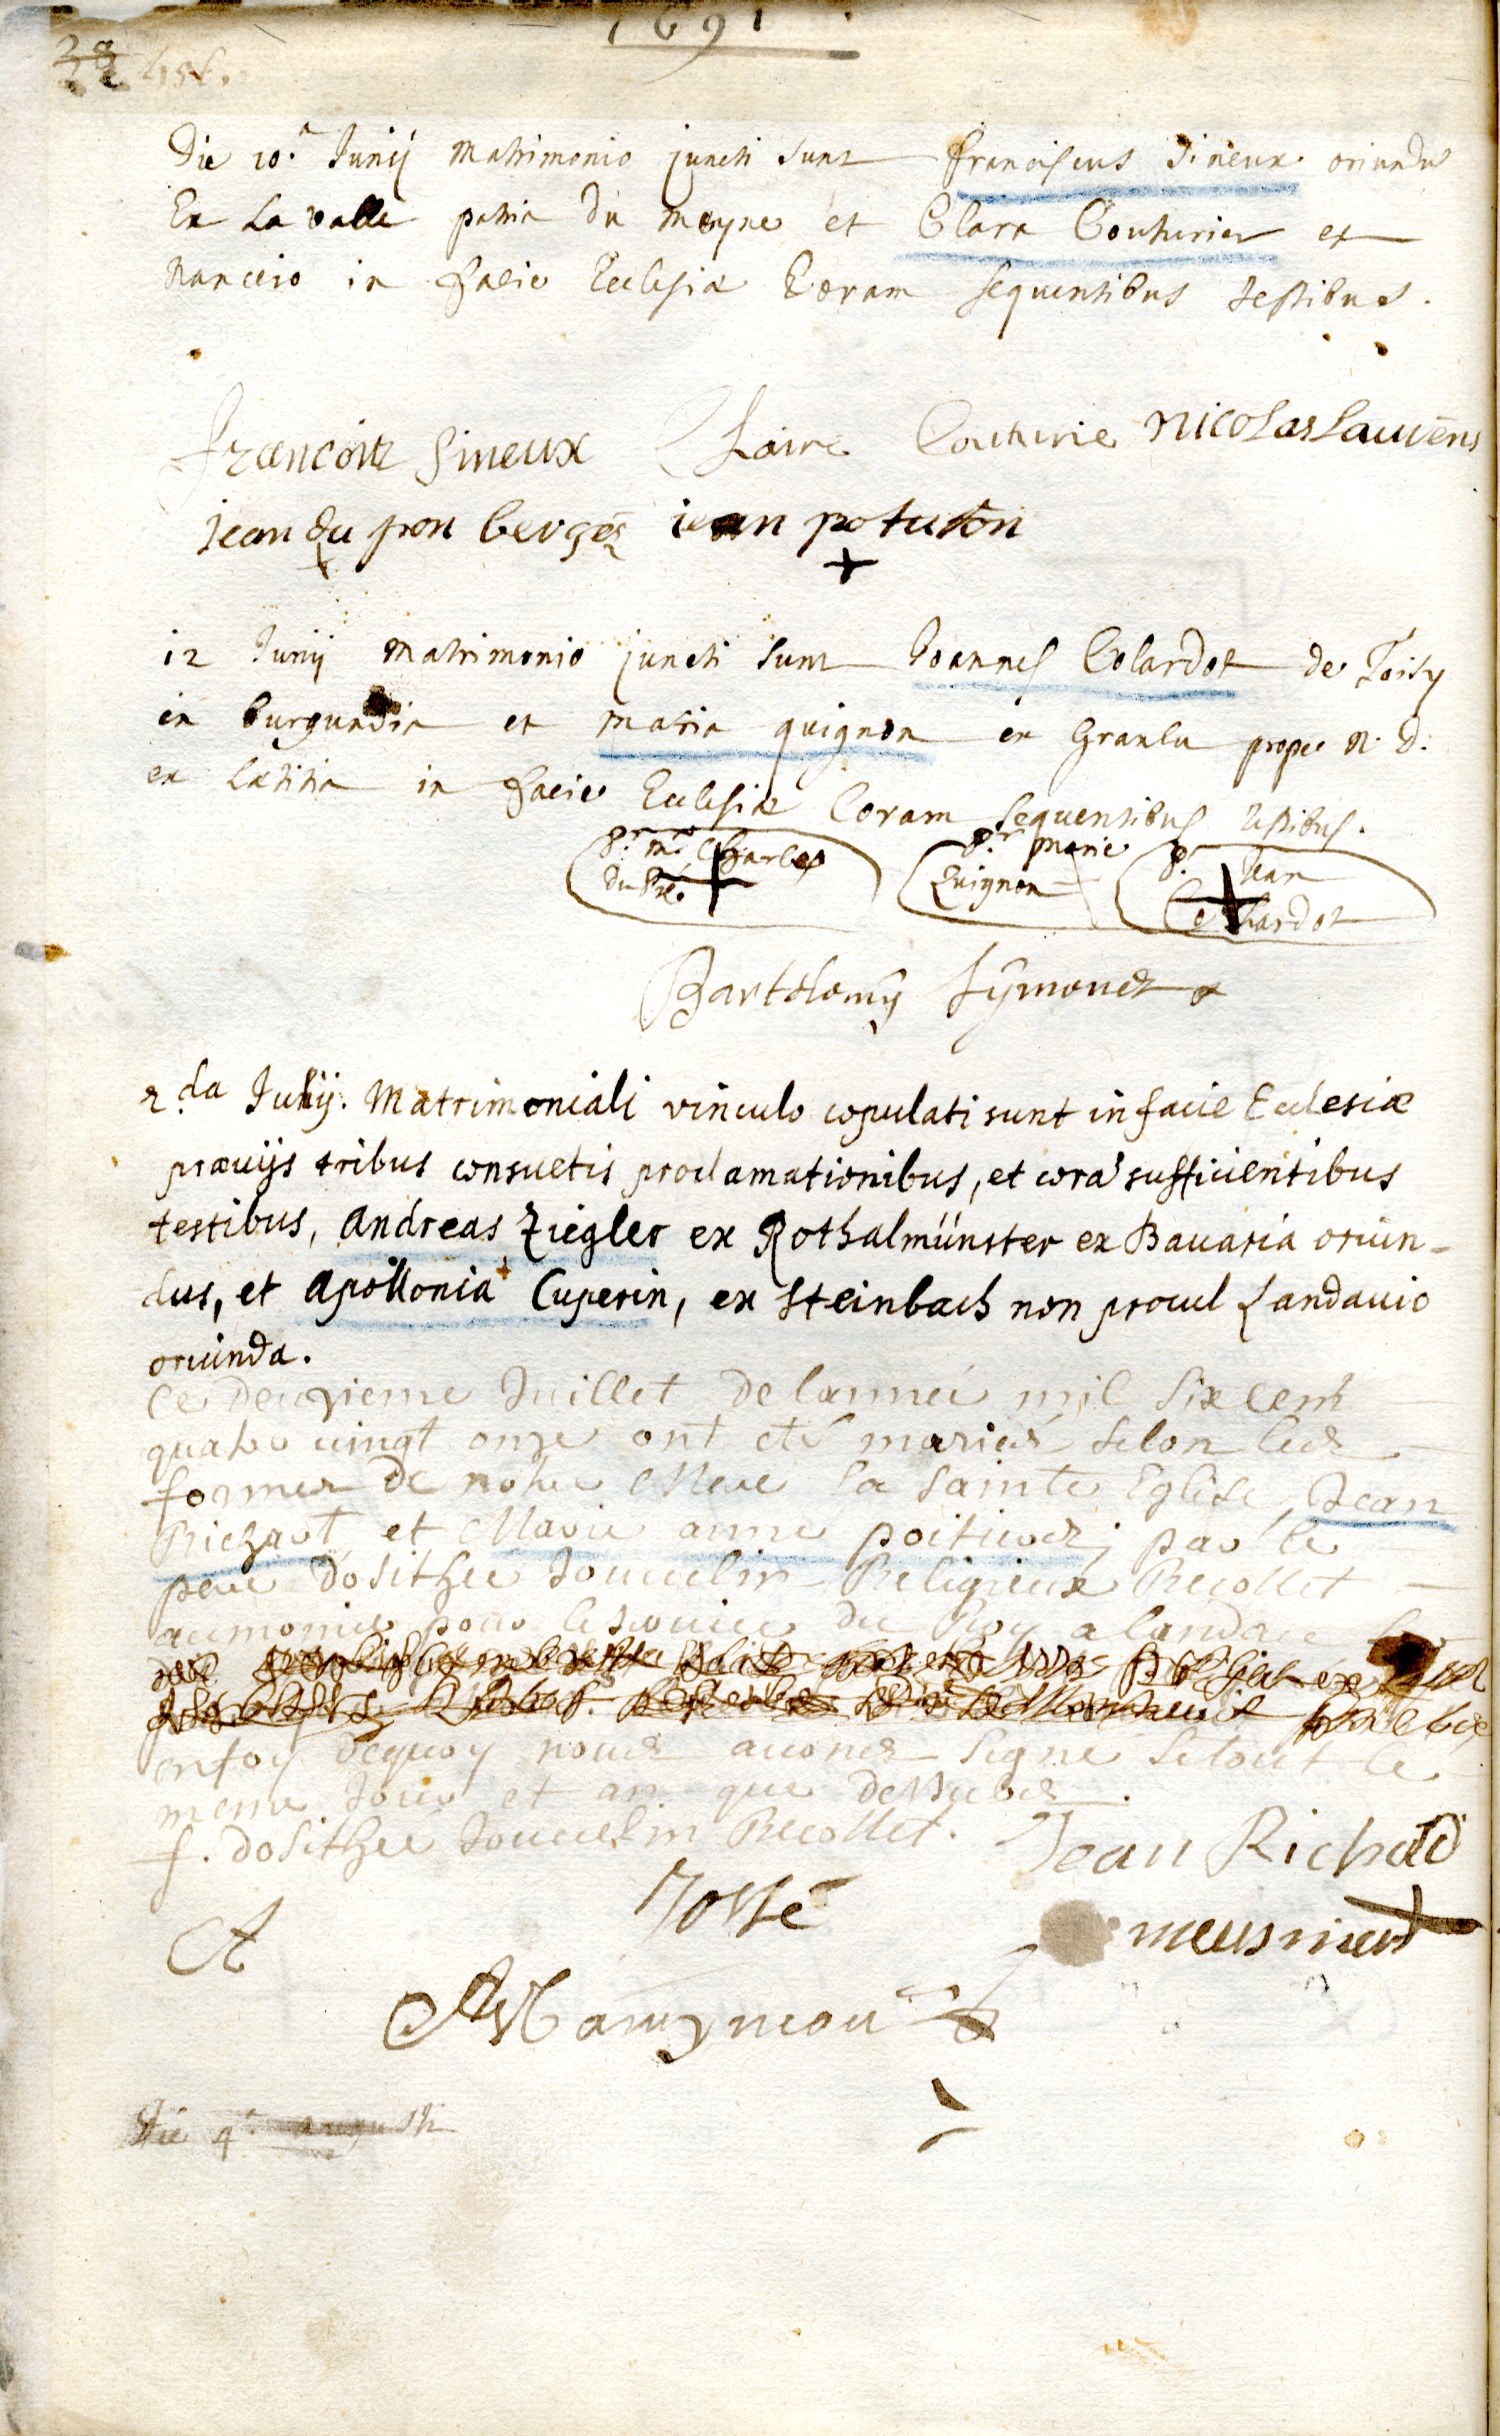 1691
28
Die 10.a Junij Matrimonio juncti sunt franciscus Sineux oriundus
Ex La valle patria du mayne et Clara Couturier ex
Nanceio in facie Ecclesiæ Coram sequentibus testibus.
françois sineux Claire Couturie nicolas lauuēns
jean du pon berger jean potuson
12 Junij Matrimonio juncti sunt Joannes Colardot de Toisy
in burgundia et maria quignon ex Granlu prope N. D.
ex Lætitia in facie Ecclesiæ Coram sequentibus testibus.
Charles
du Pré.
marie
Quignon
Jean
Colardot
Bartolomÿ Sÿmonet
2.da Julij. Matrimoniali vinculo copulati sunt in facie Ecclesiæ
præuijs tribus consuetis proclamationibus, et cora' sufficientibus
testibus, Andreas Ziegler ex Rothalmünster ex Bauaria oriun-
dus, et Apollonia Cuperin, ex Steinbach non procul Landauio
oriunda.
Ce deuxieme Juillet de lannée mil six cent
quatre uingt onze ont eté mariés selon les
formes de notre Mere la sainte Eglise, Jean
Richart et Marie anne poitiers; par le
pere dosithée Jouuelin Religieux Recollet
aumonier pour le seruice du Roy a landau
enfoy dequoy nous auons signé le tout le
meme Jour et an que dessus.
f. dosithée Jouuelin Recollet. Jean Richard
Jossé
meusnier
A
Die 4.a augusti